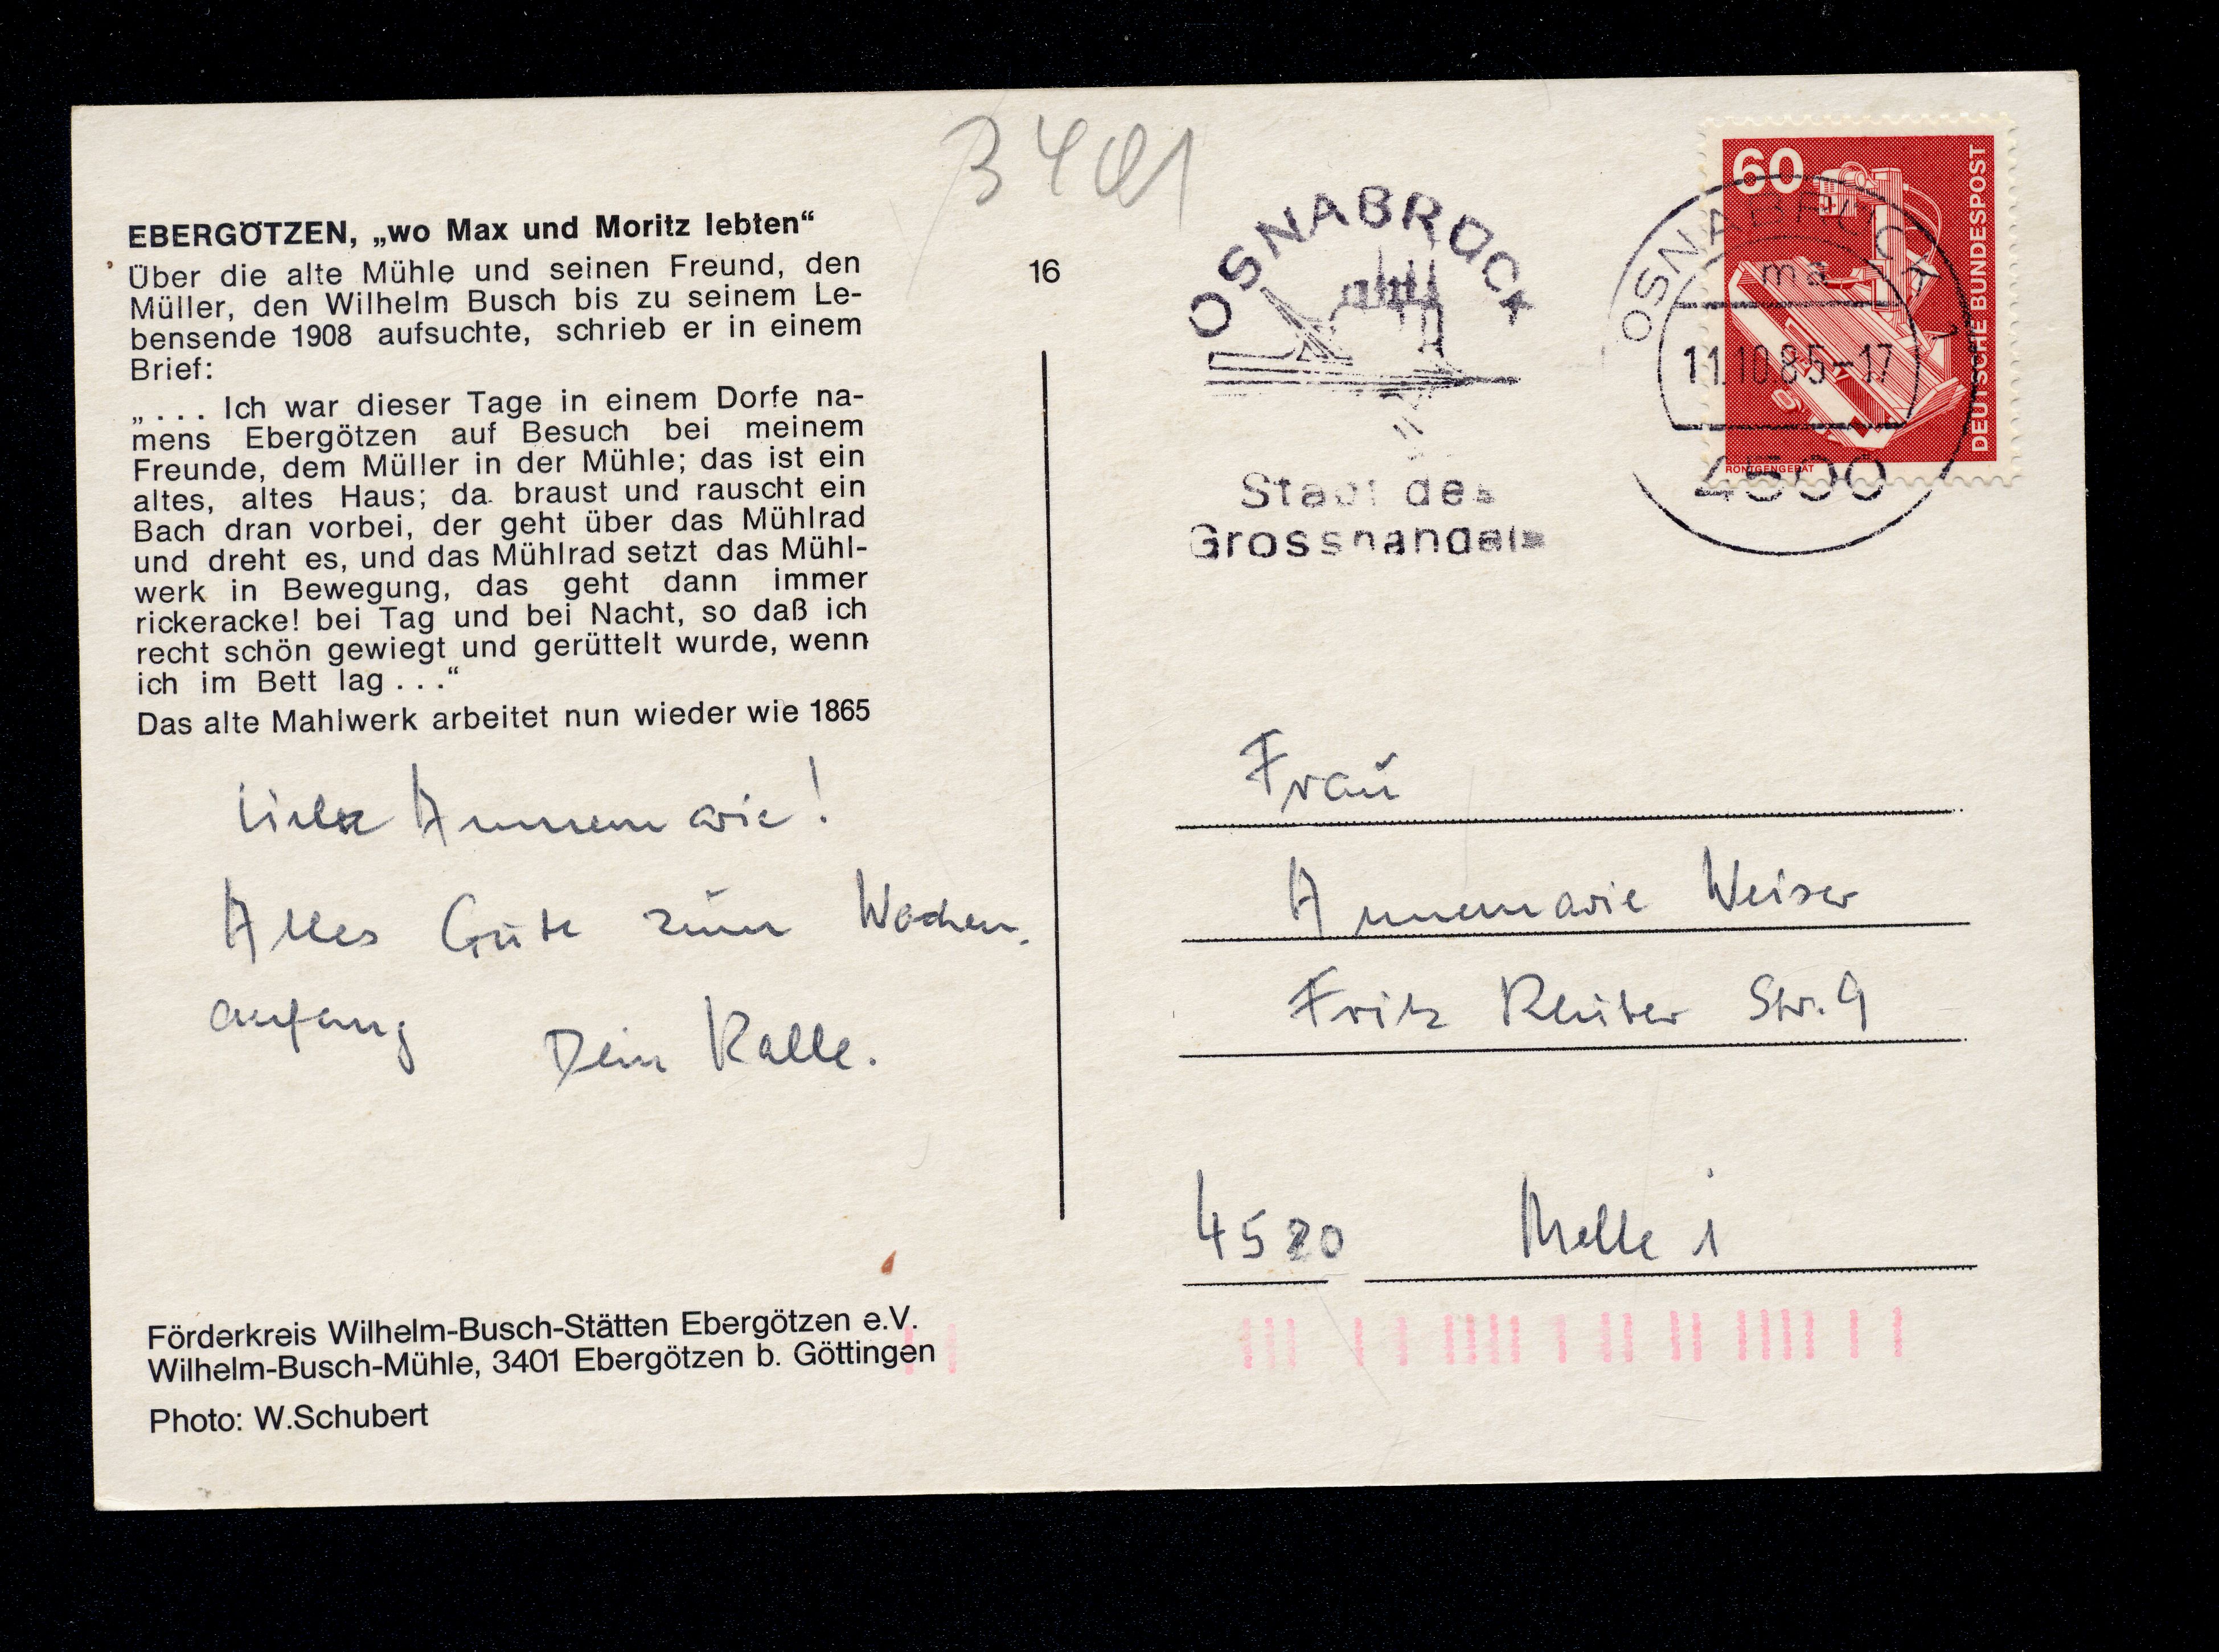 3401
EBERGÖTZEN, „wo Max und Moritz lebten“
Über die alte Mühle und seinen Freund, den
Müller, den Wilhelm Busch bis zu seinem Le-
bensende 1908 aufsuchte, schrieb er in einem
Brief:
„. . . Ich war dieser Tage in einem Dorfe na-
mens Ebergötzen auf Besuch bei meinem
Freunde, dem Müller in der Mühle; das ist ein
altes, altes Haus; da braust und rauscht ein
Bach dran vorbei, der geht über das Mühlrad
und dreht es, und das Mühlrad setzt das Mühl-
werk in Bewegung, das geht dann immer
rickeracke! bei Tag und bei Nacht, so daß ich
recht schön gewiegt und gerüttelt wurde, wenn
ich im Bett lag . . .“
Das alte Mahlwerk arbeitet nun wieder wie 1865
Liebe Annemarie!
Alles Gute zum Wochen-
anfang
Dein Kalle.
Förderkreis Wilhelm-Busch-Stätten Ebergötzen e.V.
Wilhelm-Busch-Mühle, 3401 Ebergötzen b. Göttingen
Photo: W.Schubert
16
OSNABRÜCK
Stadt des
Grosshandels
60
DEUTSCHE BUNDESPOST
RÖNTGENGERÄT
OSNABRÜCK 1
ma
11.10.85-17
4500
Frau
Annemarie Weiser
Fritz Reuter Str. 9
4520 Melle 1